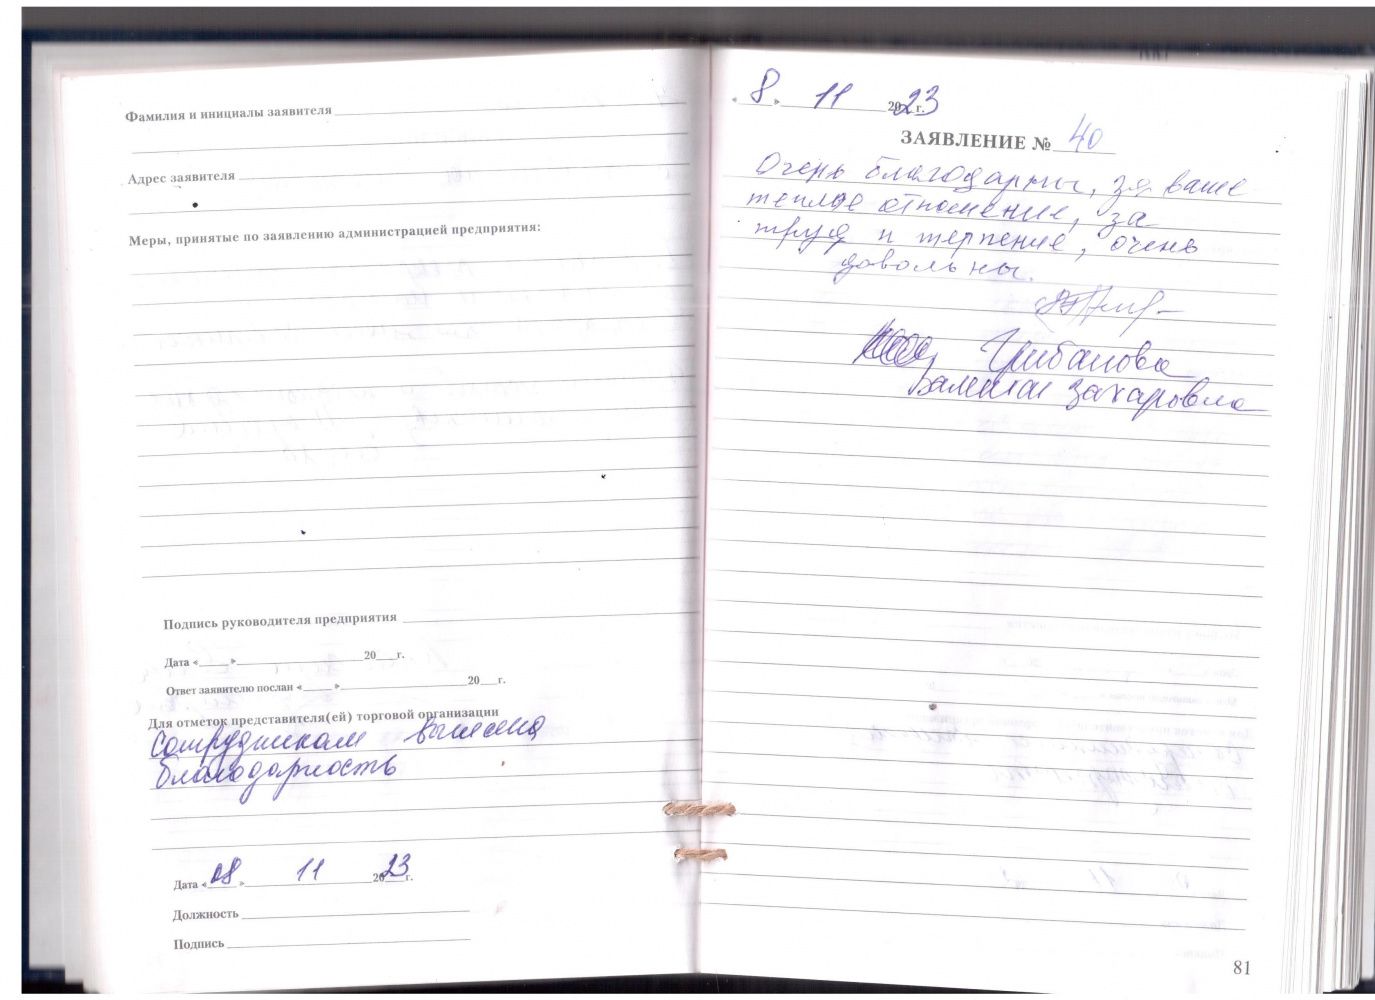 Фамилия и инициалы заявителя
Адрес заявителя
Меры, принятые по заявлению администрацией предприятия:
Подпись руководителя предприятия
Дата « » 20 г.
Ответ заявителю послан « » 20 г.
Для отметок представителя(ей) торговой организации
Сотрудникам вынесена
благодарность
Дата « 08 » 11 2023 г.
Должность
Подпись
« 8 » 11 2023 г.
ЗАЯВЛЕНИЕ № 40
Очень благодарны, за ваше
теплое отношение, за
труд и терпение, очень
довольны.
Грибанова
Валентина Захаровна
81